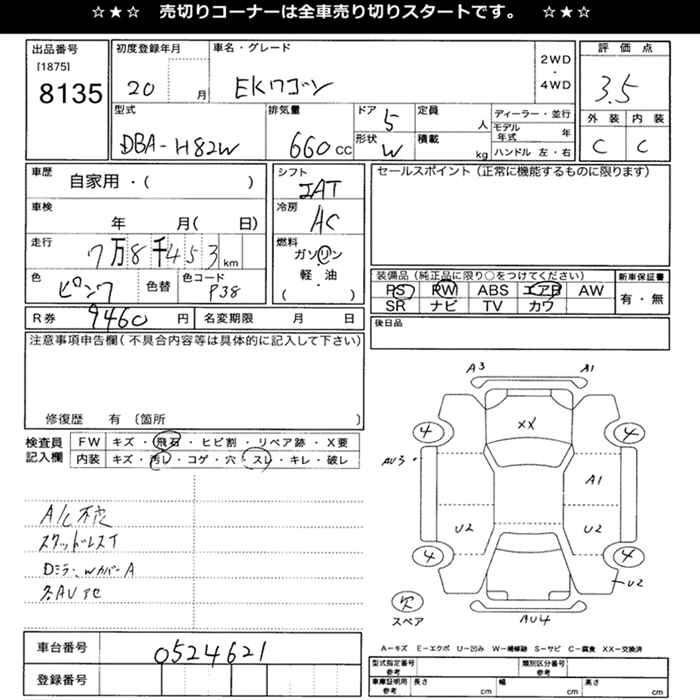 ☆★☆ 売切りコーナーは全車売り切りスタートです。 ☆★☆
出品番号
[1875]
8135
初度登録年月
20 月
車名・グレード
EKワゴン
2WD
・
4WD
評価点
3.5
外装 内装
C C
型式
DBA-H82W
排気量
660 CC
ドア 5
形状 W
定員 人
積載 kg
ディーラー・並行
モデル年式 年
ハンドル 左・右
車歴 自家用・( )
車検 年 月( 日)
走行 7万8千453 km
色 ピンク
色替
色コード P38
シフト
IAT
冷房
AC
燃料
ガソリン
軽・油
( )
セールスポイント (正常に機能するものに限ります)
装備品 (純正品に限り○をつけてください)
PS PW ABS エアB AW
SR ナビ TV カワ
新車保証書
有・無
R券 9460 円
名変期限 月 日
後日品
注意事項申告欄(不具合内容等は具体的に記入して下さい)
修復歴 有 (箇所 )
検査員
記入欄
FW キズ・飛石・ヒビ割・リペア跡・X要
内装 キズ・汚レ・コゲ・穴・スレ・キレ・破レ
A/C不良
スタッドレスT
Dミラー、WカバーA
車台番号 0524621
登録番号
A3 A1
XX
4 4
AU3
A1
U2 U2
4 4
U2
欠
スペア
AU4
A-キズ E-エクボ U-凹み W-補修跡 S-サビ C-腐食 XX-交換済
型式指定番号
参考
類別区分番号
参考
車庫証明用
参考
長さ cm 幅 cm 高さ cm